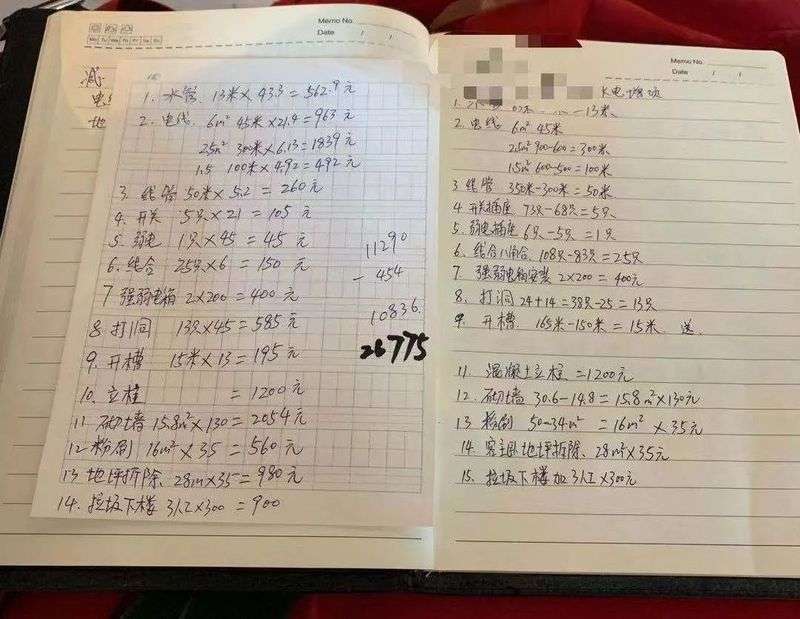 Memo No.
Mo Tu We Th Fr Sa Su
Date / /
减
电
地
1. 水管. 13米 × 43.3 = 562.9元
2. 电线. 6m² 45米 × 21.4 = 963元
2.5m² 300米 × 6.13 = 1839元
1.5 100米 × 4.92 = 492元
3. 线管 50米 × 5.2 = 260元
4. 开关 5只 × 21 = 105元
5. 弱电 1只 × 45 = 45元
6. 线合 25只 × 6 = 150元
7 强弱电箱 2×200 = 400元
8 打洞 13只×45 = 585元
9. 开槽 15米×13 = 195元
10. 立柱 = 1200元
11. 砌墙 15.8m²×130 = 2054元
12 粉刷 16m²×35 = 560元
13 地坪拆除. 28m²×35 = 980元
14. 垃圾下楼 3人工×300 = 900
11290
- 454
10836.
26775
Memo No.
Date / /
水电增项
13米.
2. 电线 6m² 45米
2.5m² 900-600=300米
1.5m² 600-500=100米
3 线管 350米-300米=50米
4 开关插座 73只-68只=5只
5. 弱电插座 6只-5只=1只
6. 线合八角合. 108只-83只=25只
7 强弱电箱安装 2×200=400元
8. 打洞 24+14=38只-25=13只
9. 开槽. 165米-150米=15米 送
11. 混凝土立柱 =1200元
12. 砌墙 30.6-14.8=15.8m²×130元
13 粉刷 50-34m² = 16m² ×35元
14. 客主卧地坪拆除. 28m²×35元
15. 垃圾下楼加3人工×300元